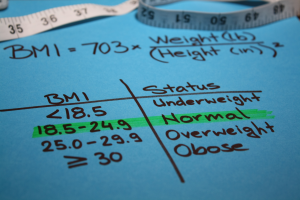 35 36 37
49 50 51 52
BMI = 703 × Weight (lb) / (Height (in))²
BMI Status
<18.5 Underweight
18.5-24.9 Normal
25.0-29.9 Overweight
≥ 30 Obose